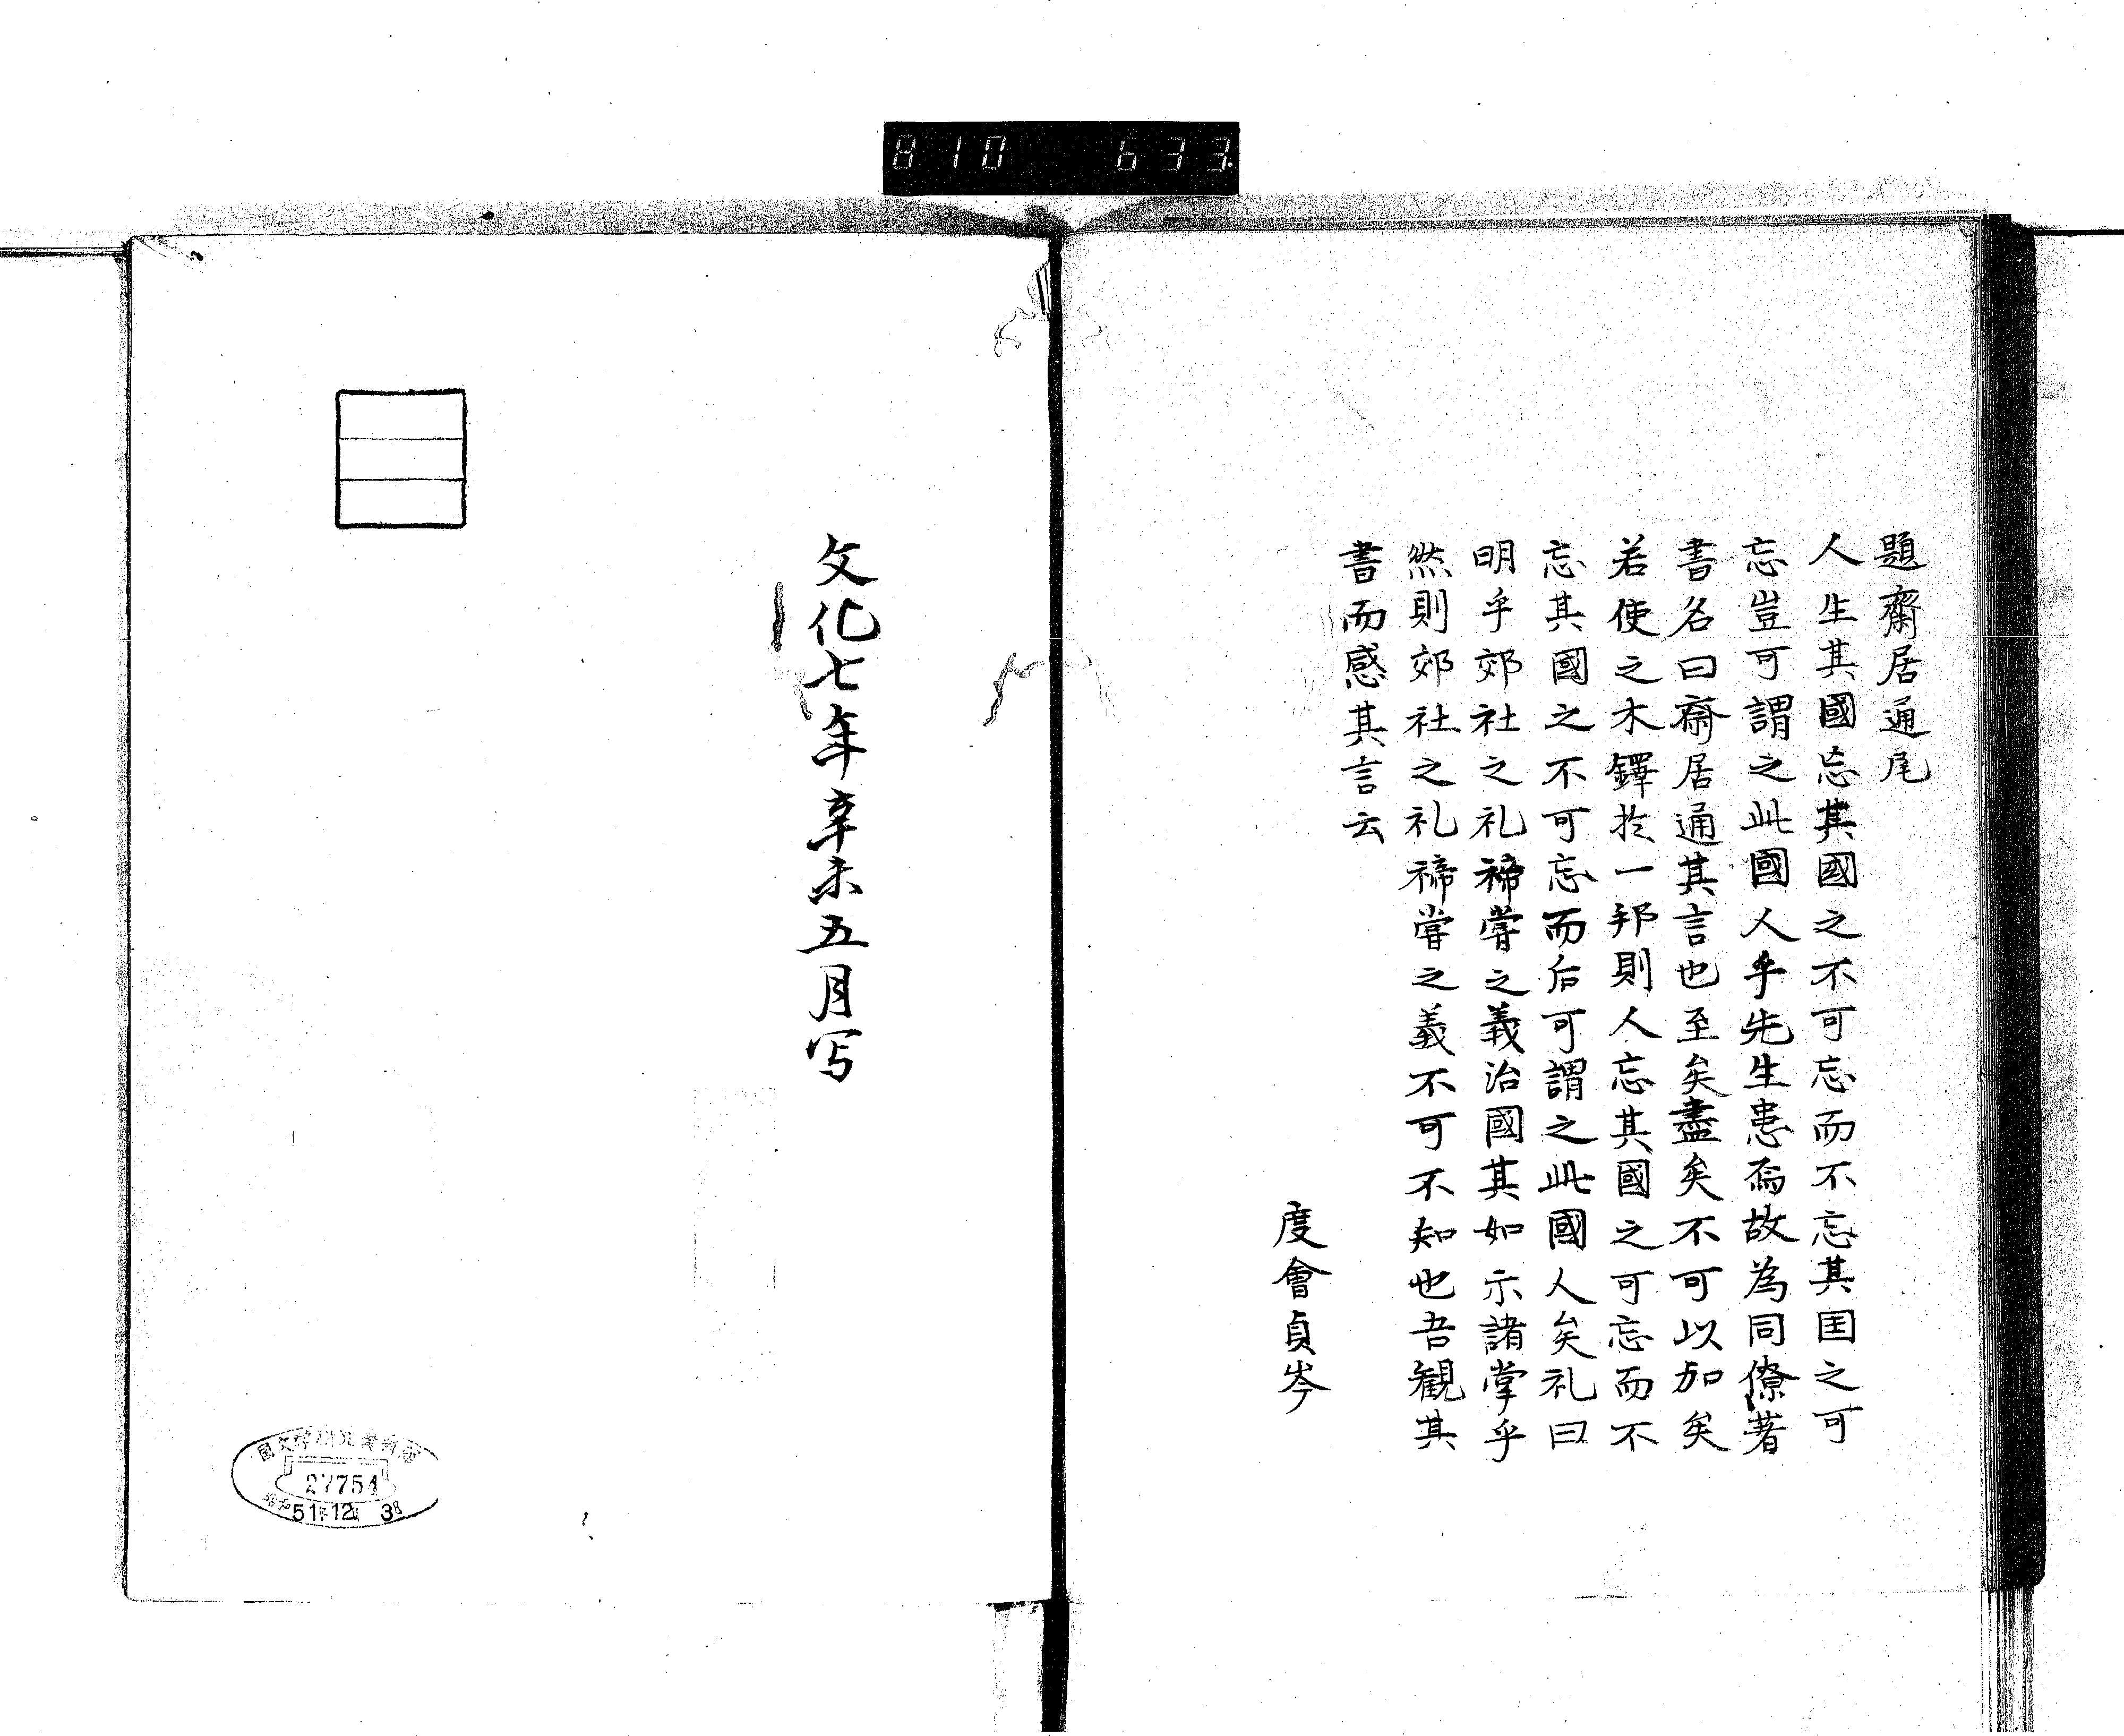 810 633
題齋居通尾
人生其國忘其國之不可忘而不忘其囯之可
忘豈可謂之此國人乎先生患焉故為同僚著
書名曰齋居通其言也至矣盡矣不可以加矣
若使之木鐸於一邦則人忘其國之可忘而不
忘其國之不可忘而后可謂之此國人矣礼曰
明乎郊社之礼禘嘗之義治國其如示諸掌乎
然則郊社之礼禘嘗之義不可不知也吾観其
書而感其言云
度會貞岑
文化七年辛未五月写
国文学研究資料館
27754
昭和51年12月3日